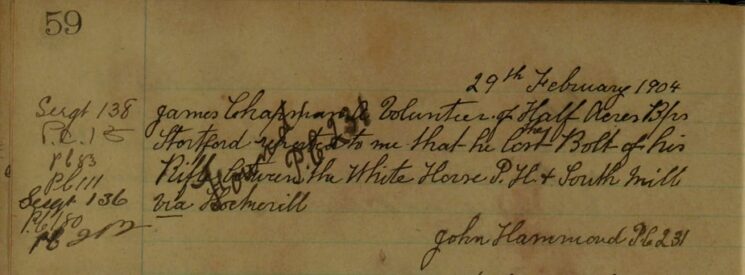 59
29th February 1904
Sergt 138
P.C. 15
Pc 83
Pc 111
Sergt 136
Pc 180
Pc 212
James Chapman a Volunteer of Half Acres Bps
Stortford reported to me that he lost the Bolt of his
Rifle between the White Horse P.H & South Mill
via Hockerill
Pc 231
John Hammond Pc 231